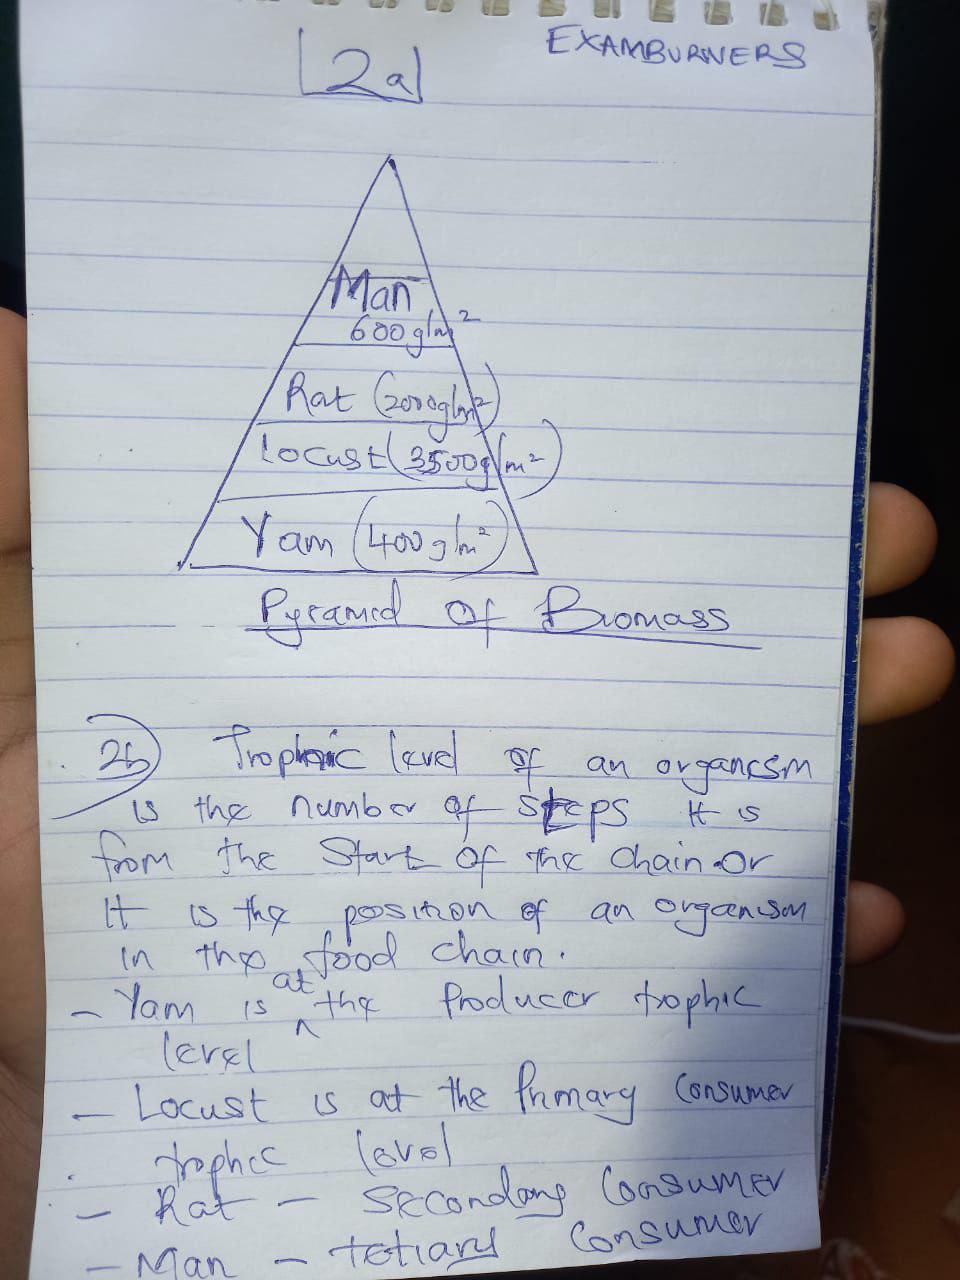 EXAMBURNERS
2a
Man
600g/m²
Rat (2000g/m²)
Locust (3500g/m²)
Yam (400g/m²)
Pyramid of Biomass
2b) Trophic level of an organism
is the number of steps It is
from the Start of the Chain. Or
It is the position of an organism
in the food chain.
- Yam is at the Producer trophic
level
- Locust is at the Primary Consumer
trophic level
- Rat - Secondary Consumer
- Man - tetiary Consumer